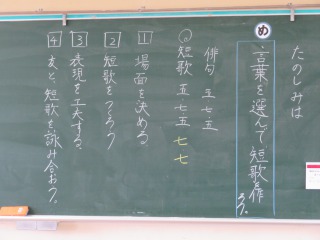 たのしみは
め 言葉を選んで、短歌を作ろう。
俳句 五七五
短歌 五七五七七
1 場面を決める
2 短歌をつくろう
3 表現を工夫する
4 友と、短歌を詠み合おう。